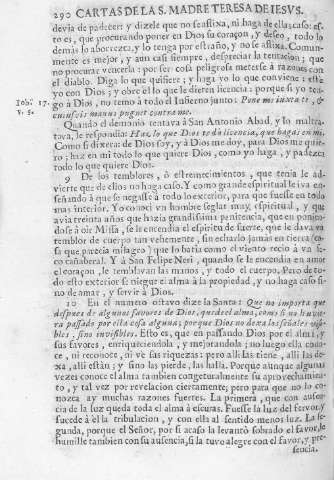 290 CARTAS DE LA S. MADRE TERESA DE IESVS.
devia de padecer; y dizele que no se aflixa, ni haga de ella caso: esto
es, que procurando poner en Dios su coraçon, y deseo, todo lo
demàs lo aborrezca, y lo tenga por estraño, y no se aflixa. Comun-
mente es mejor, y aun casi siempre, despreciar la tentacion; que
no procurar vencerla: por ser cosa peligrosa meterse à razones con
el diablo. Diga lo que quisiere; y haga yo lo que conviene: estè
yo con Dios; y obre èl lo que le dieren licencia: porque si yo ten-
go à Dios, no temo à todo el Infierno junto: Pone me iuxta te, &
cuiusvis manus pugnet contra me.
Iob. 17.
v. 3.
Quando el demonio tentava à San Antonio Abad, y lo maltra-
tava, le respondia: Haz lo que Dios te dà licencia, que hagas en mi.
Como si dixera: de Dios soy, y à Dios me doy, para Dios me quie-
ro; haz en mi todo lo que quiere Dios, como yo haga, y padezca
todo lo que quiere Dios.
9 De los temblores, ò estremecimientos, que tenia le ad-
vierte que de ellos no haga caso. Y como grande espiritual le iva en-
señando à que se negasse à todo lo exterior, para que fuesse en todo
mas interior. Yo conocì vn hombre seglar muy espiritual, y que
avia treinta años que hazia grandissima penitencia, que en ponien-
dose à oir Missa, se le encendia el espiritu de suerte, que le dava vn
temblor de cuerpo tan vehemente, sin echarlo jamàs en tierra (co-
sa que parecia milagro) que lo batia como el viento recio à vn le-
ve cañaberal. Y à San Felipe Neri, quando se le encendia en amor
el coraçon, le temblavan las manos, y todo el cuerpo. Pero de to-
do esto exterior se niegue el alma à la propiedad, y no haga caso si-
no de amar, y servir à Dios.
10 En el numero octavo dize la Santa: Que no importa que
despues de algunos favores de Dios, quede el alma, como si no huvie-
ra passado por ella cosa alguna; porque Dios no dexa los señales visi-
bles, sino invisibles. Esto es, que en passando Dios por el alma, y
sus favores, enriqueciendola, y mejorandola; no luego ella cono-
ce, ni reconoce, ni vè sus riquezas: pero alli las tiene, alli las de-
xa, alli estàn; y sino las pierde, las halla. Porque aunque algunas
vezes conoce el alma tambien congeturalmente su aprovechamien-
to, y tal vez por revelacion ciertamente; pero para que no lo co-
nozca ay muchas razones fuertes. La primera, que con ausen-
cia de la luz queda toda el alma à escuras. Fuesse la luz del fervor, y
sucede à èl la tribulacion, y con ella al sentido menos luz. La se-
gunda, porque el Señor, por si acaso la levantò sobrado el favor, le
humille tambien con su ausencia, si la tuvo alegre con el favor, y pre-
sencia.